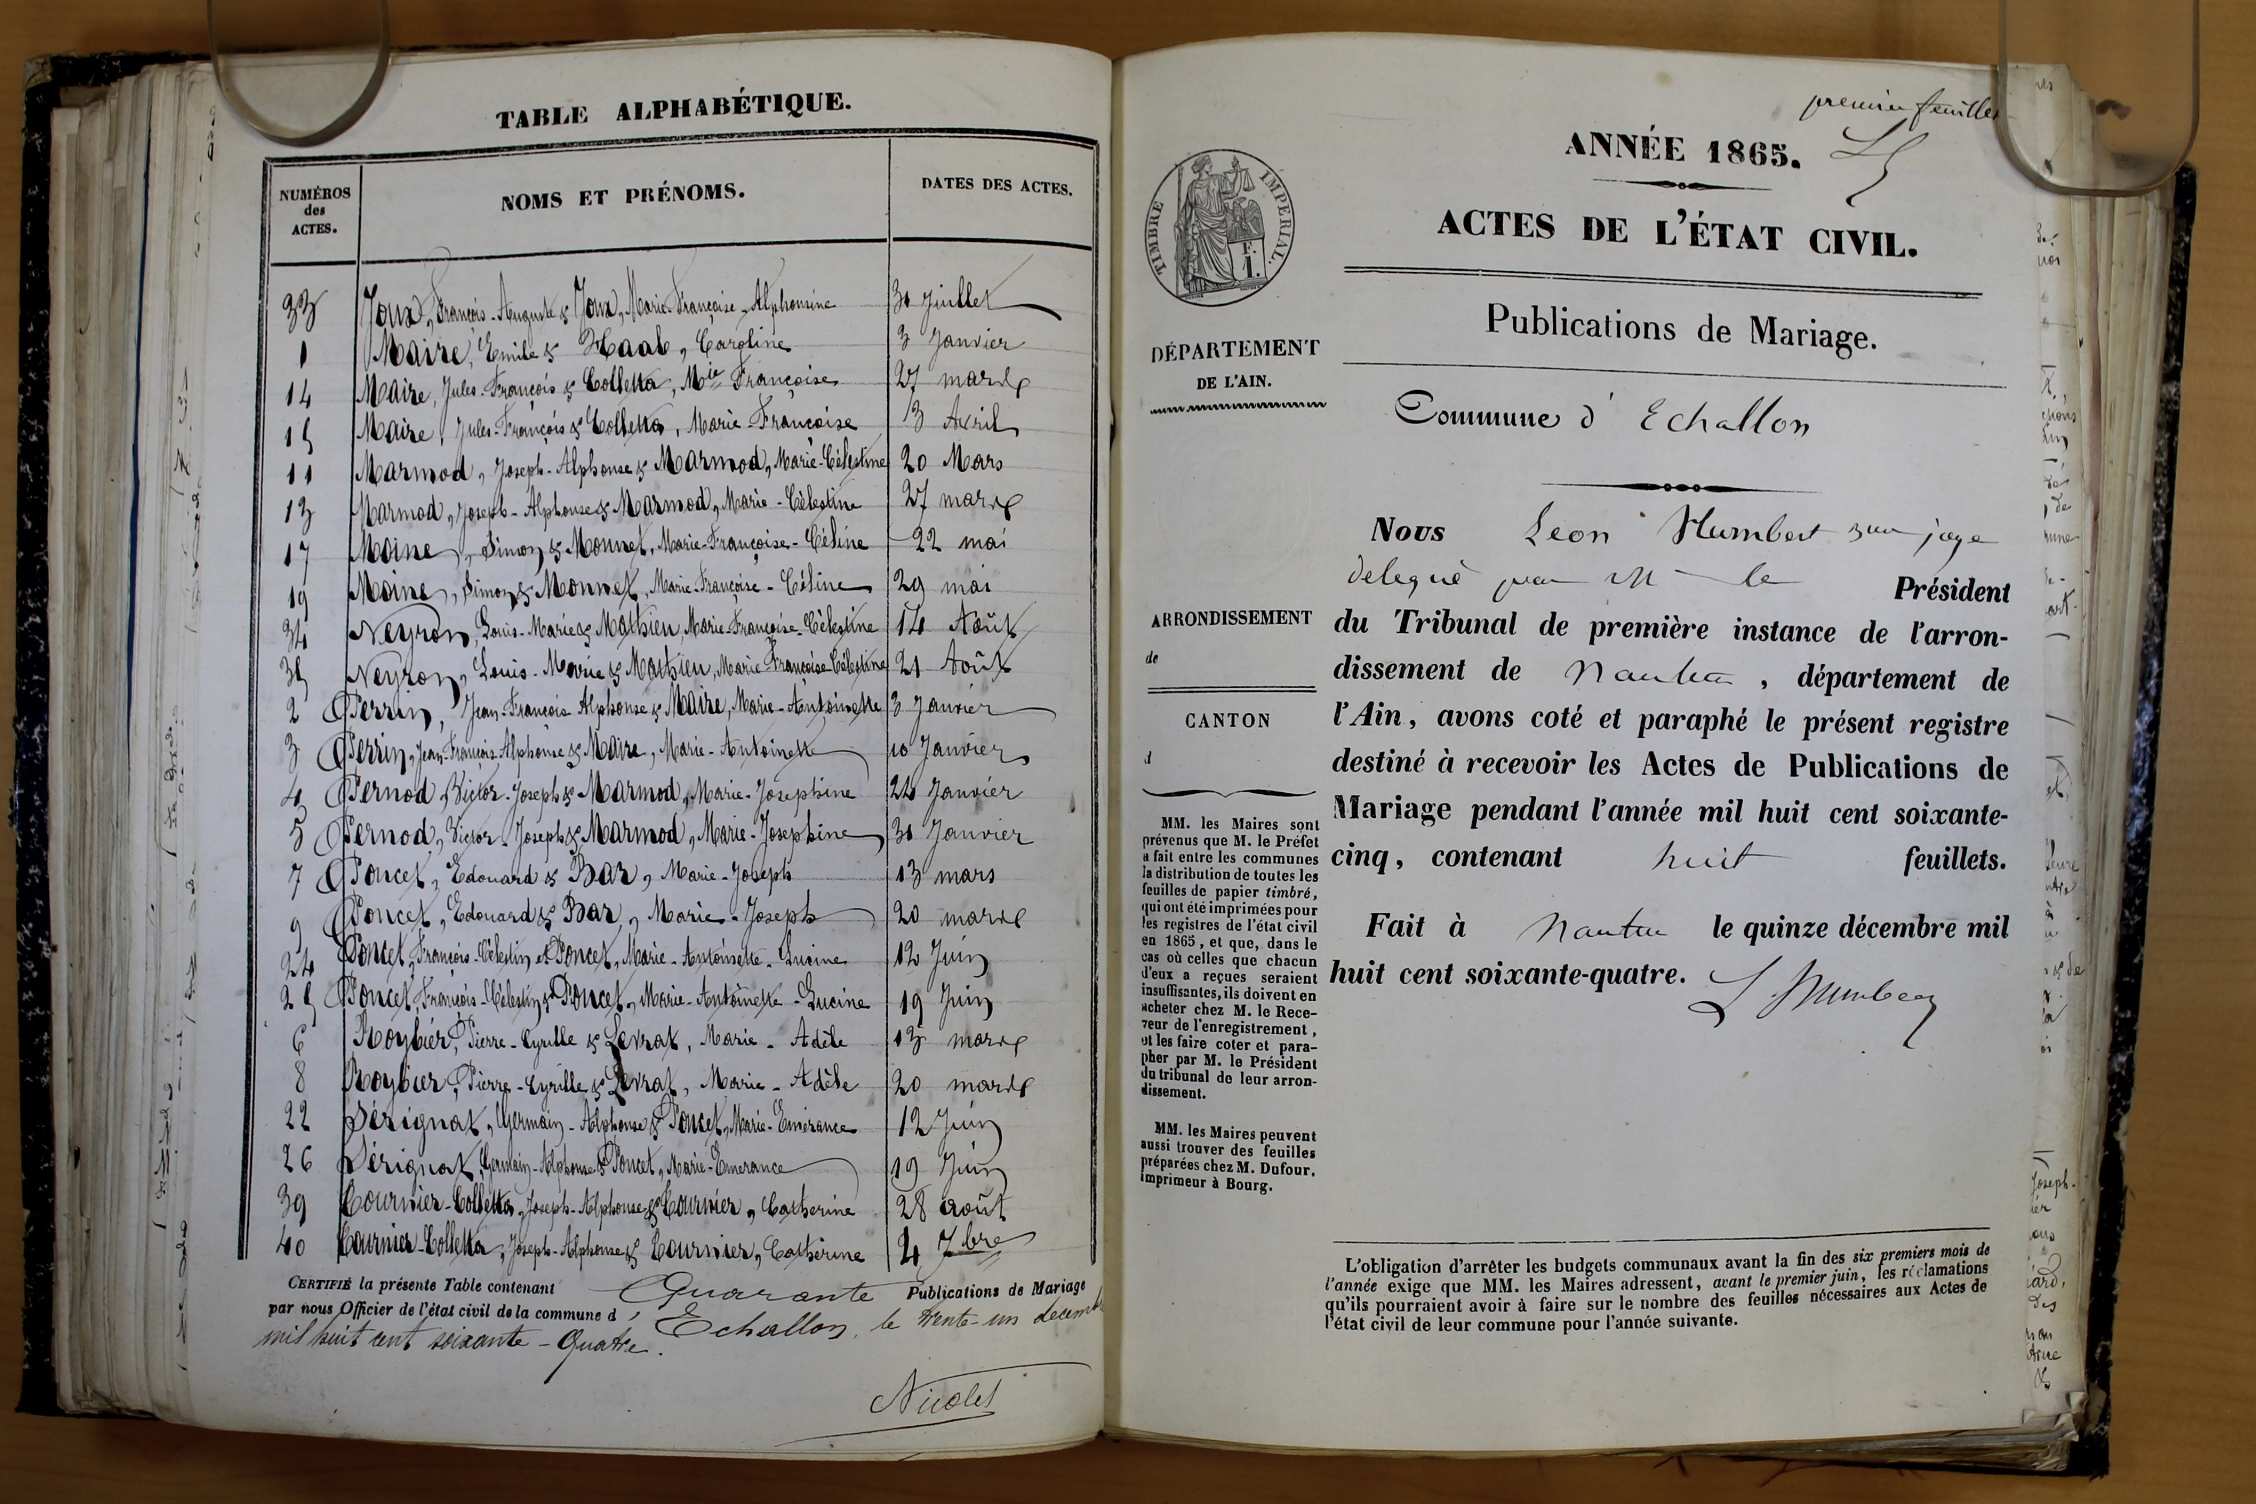 TABLE ALPHABÉTIQUE.
NUMÉROS des ACTES. NOMS ET PRÉNOMS. DATES DES ACTES.
33 Joux, François-Auguste & Joux, Marie-Françoise-Alphonsine 31 Juillet
1 Maire, Emile & Haab, Caroline 3 Janvier
14 Maire, Jules-François & Colletta, Mie Françoise 27 mars
15 Maire, Jules-François & Colletta, Marie-Françoise 13 Avril
11 Marmod, Joseph-Alphonse & Marmod, Marie-Célestine 20 Mars
13 Marmod, Joseph-Alphonse & Marmod, Marie-Célestine 27 mars
17 Moine, Simon & Monnet, Marie-Françoise-Céline 22 mai
19 Moine, Simon & Monnet, Marie-Françoise-Céline 29 mai
34 Neyron, Louis-Marie & Mathieu, Marie-Françoise-Célestine 14 Août
35 Neyron, Louis-Marie & Mathieu, Marie-Françoise-Célestine 21 Août
2 Perrin, Jean-François Alphonse & Maire, Marie-Antoinette 3 Janvier
3 Perrin, Jean-François Alphonse & Maire, Marie-Antoinette 10 Janvier
4 Pernod, Victor-Joseph & Marmod, Marie-Josephine 24 Janvier
5 Pernod, Victor-Joseph & Marmod, Marie-Josephine 31 Janvier
7 Poncet, Edouard & Bar, Marie-Joseph 13 mars
9 Poncet, Edouard & Bar, Marie-Joseph 20 mars
24 Poncet, François-Célestin et Poncet, Marie-Antoinette-Lucine 12 Juin
25 Poncet, François-Célestin & Poncet, Marie-Antoinette-Lucine 19 Juin
6 Roybier, Pierre-Cyrille & Levrat, Marie-Adèle 13 mars
8 Roybier, Pierre-Cyrille & Levrat, Marie-Adèle 20 mars
22 Sérignat, Germain-Alphonse & Poncet, Marie-Emérance 12 Juin
26 Sérignat, Germain-Alphonse & Poncet, Marie-Emerance 19 Juin
39 Tournier-Colletta, Joseph-Alphonse & Tournier, Catherine 28 août
40 Tournier-Colletta, Joseph-Alphonse & Tournier, Cathérine 4 7bre
CERTIFIÉ la présente Table contenant Quarante Publications de Mariage
par nous Officier de l'état civil de la commune d' Echallon, le trente-un décembre
mil huit cent soixante-Quatre.
Nicolet
premier feuillet
ANNÉE 1865.
ACTES DE L'ÉTAT CIVIL.
Publications de Mariage.
TIMBRE IMPÉRIAL.
F.
1.
DÉPARTEMENT
DE L'AIN.
Commune d' Echallon
Nous Leon Humbert juge
delegué par M le Président
du Tribunal de première instance de l'arron-
dissement de Nantua, département de
l'Ain, avons coté et paraphé le présent registre
destiné à recevoir les Actes de Publications de
Mariage pendant l'année mil huit cent soixante-
cinq, contenant huit feuillets.
Fait à Nantua le quinze décembre mil
huit cent soixante-quatre.
L Humbert
ARRONDISSEMENT
de
CANTON
d
MM. les Maires sont
prévenus que M. le Préfet
a fait entre les communes
la distribution de toutes les
feuilles de papier timbré,
qui ont été imprimées pour
les registres de l'état civil
en 1865, et que, dans le
cas où celles que chacun
d'eux a reçues seraient
insuffisantes, ils doivent en
acheter chez M. le Rece-
veur de l'enregistrement,
et les faire coter et para-
pher par M. le Président
du tribunal de leur arron-
dissement.
MM. les Maires peuvent
aussi trouver des feuilles
préparées chez M. Dufour,
imprimeur à Bourg.
L'obligation d'arrêter les budgets communaux avant la fin des six premiers mois de
l'année exige que MM. les Maires adressent, avant le premier juin, les réclamations
qu'ils pourraient avoir à faire sur le nombre des feuilles nécessaires aux Actes de
l'état civil de leur commune pour l'année suivante.